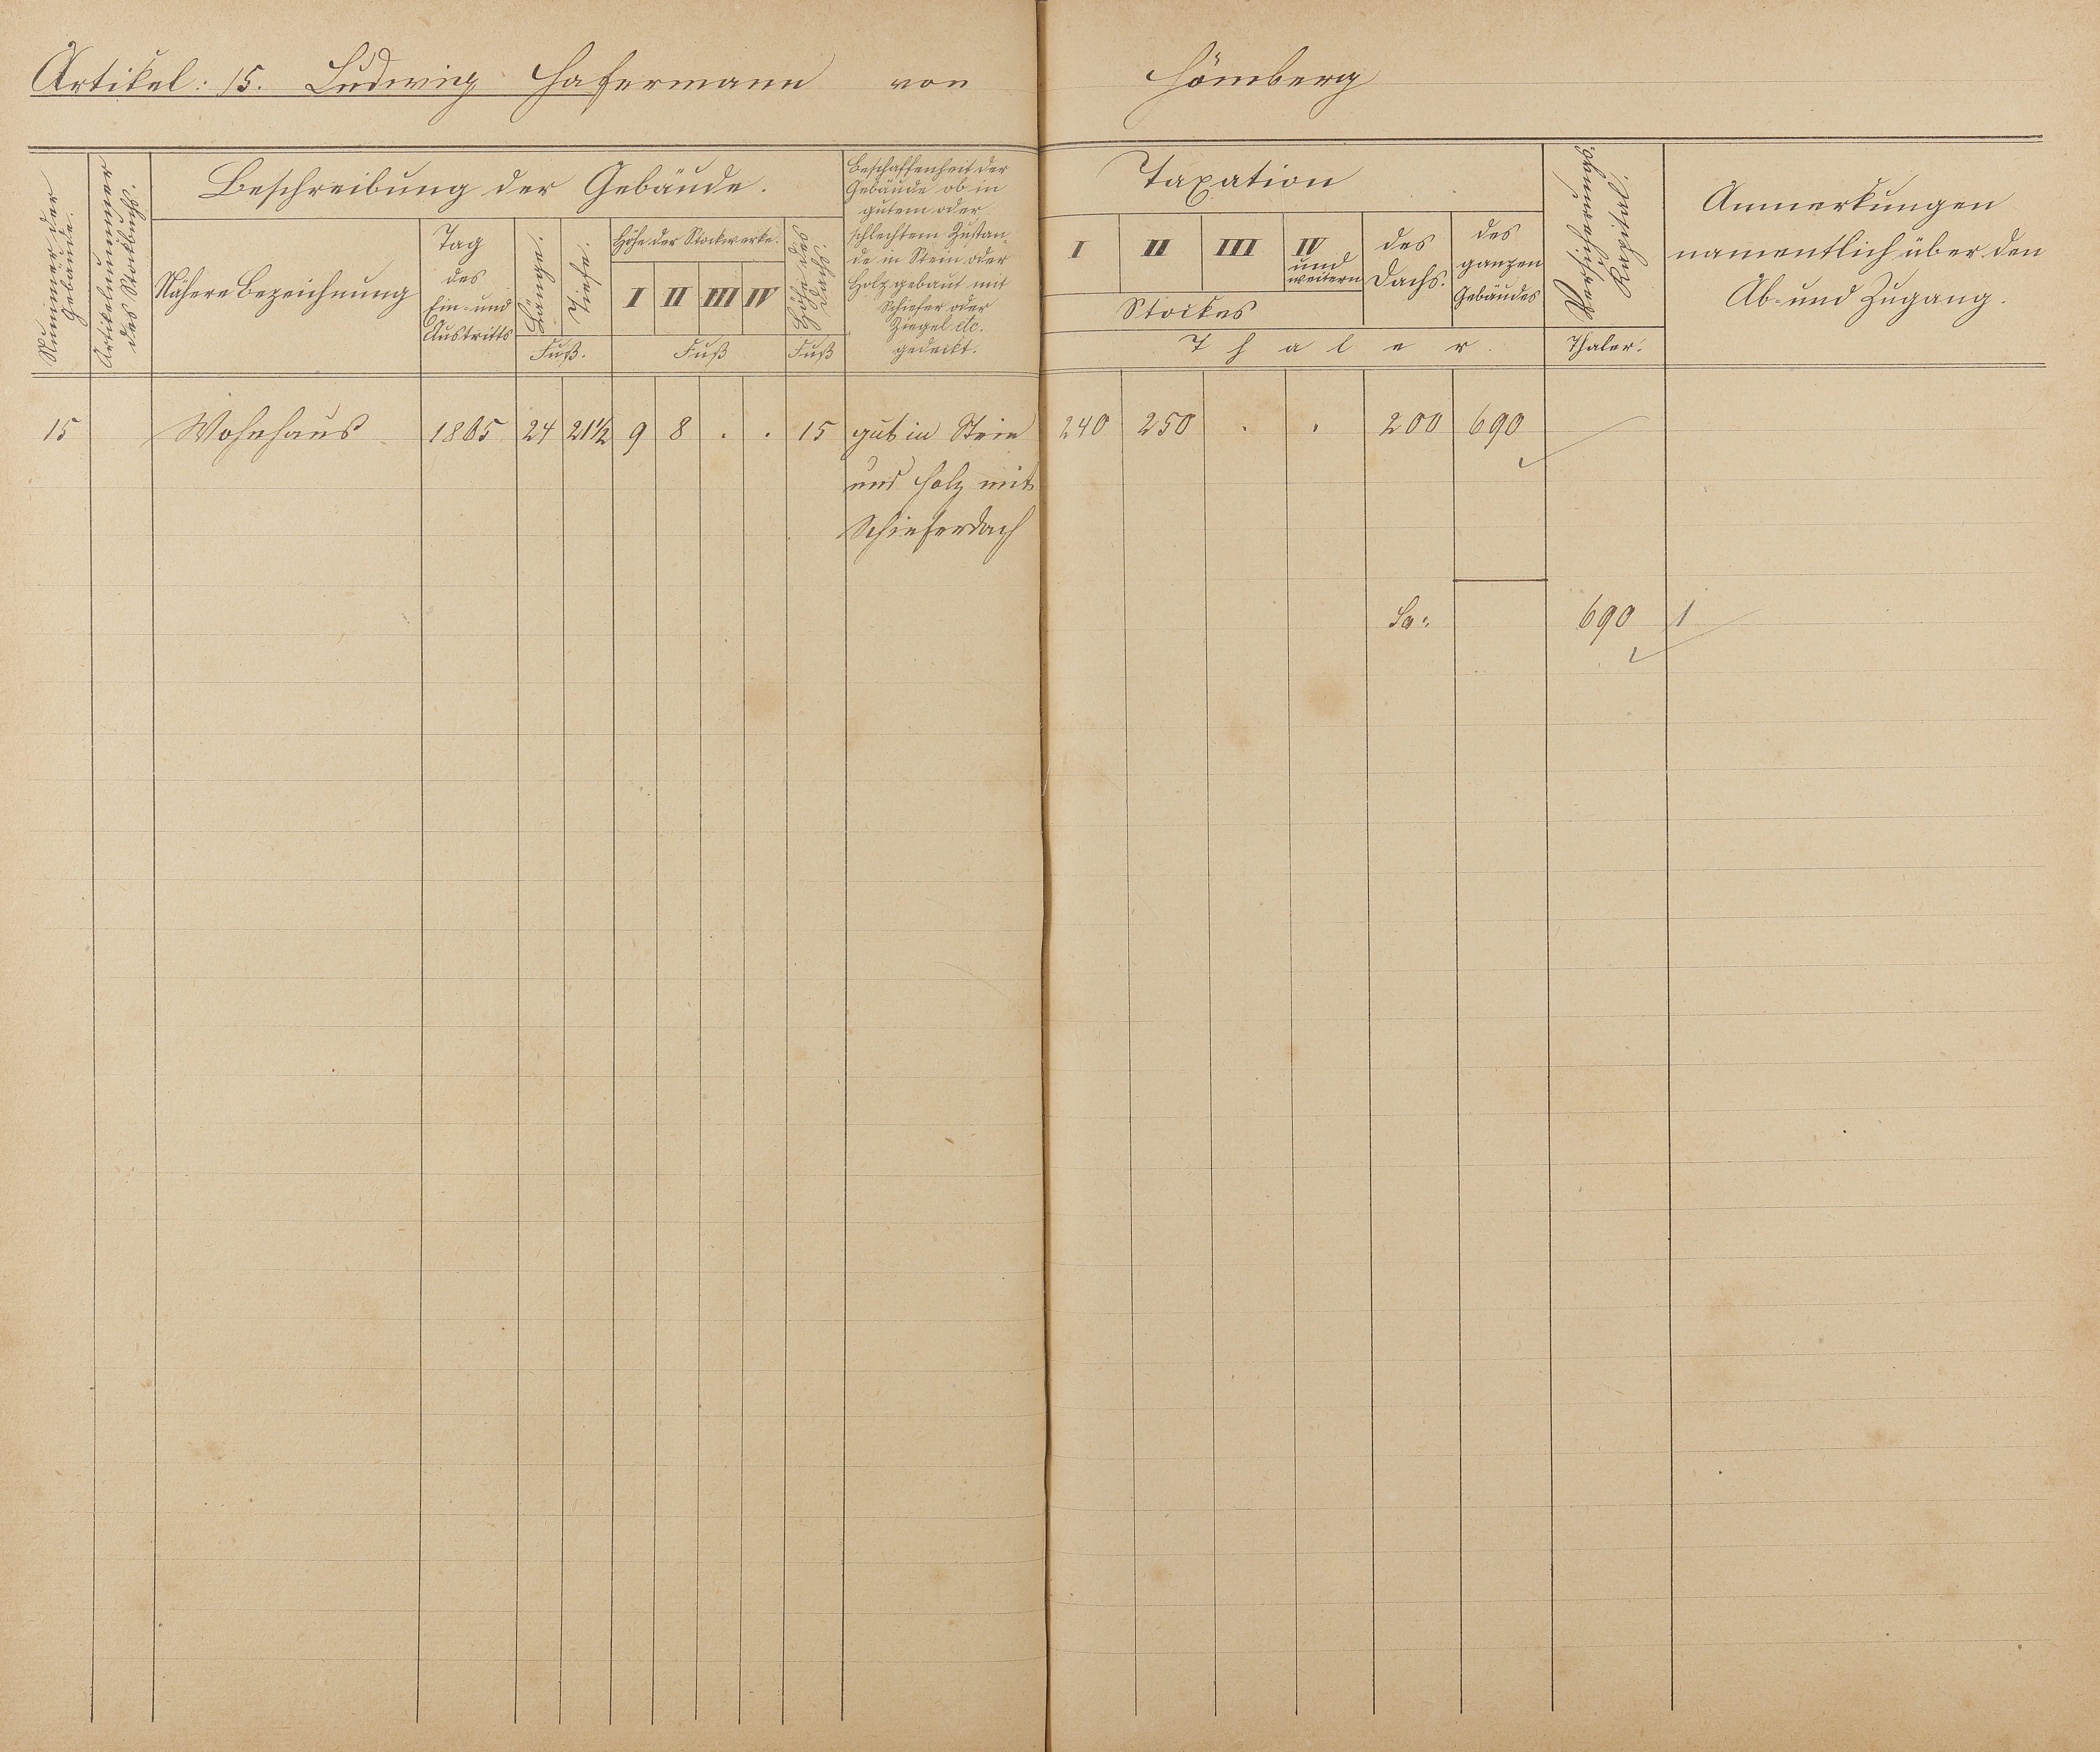 Artikel: 15. Ludwig Hafermann von Hömberg
Nummer der
Gebäude.
Artikelnummer
des Stockbuchs.
Beschreibung der Gebäude.
Nähere Bezeichnung
Tag
des
Ein- und
Austritts
Länge.
Tiefe.
Fuß.
Höhe der Stockwerke.
I II III IV
Fuß
Höhe des
Dachs
Fuß
Beschaffenheit der
Gebäude ob in
gutem oder
schlechtem Zustan-
de in Stein oder
Holz gebaut mit
Schiefer oder
Ziegel etc.
gedeckt.
Taxation
I II III IV
und
weitern
Stockes
des
Dachs.
des
ganzen
Gebäudes
Thaler.
Versicherungs-
Kapital.
Thaler.
Anmerkungen
namentlich über den
Ab- und Zugang.
15 Wohnhaus 1865 24 21½ 9 8 . . 15 gut in Stein 240 250 . . 200 690
und Holz mit
Schieferdach
Sa: 690 1